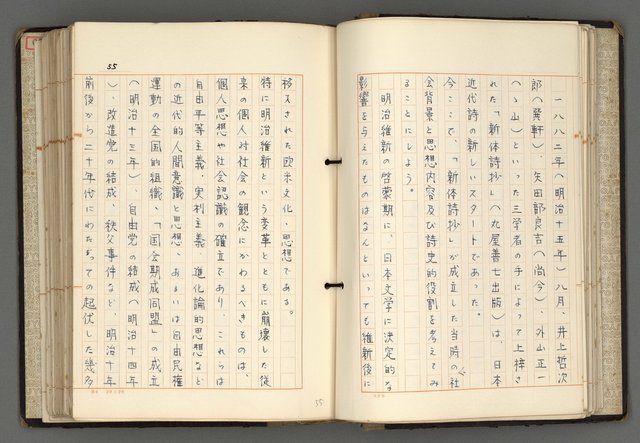 一八八二年(明治十五年)八月、井上哲次
郎(巽軒)、矢田部良吉(尚今)、外山正一
(ゝ山)といった三学者の手によって上梓さ
れた「新体詩抄」(丸屋善七出版)は、日本
近代詩の新しいスタートであった。
今ここで、「新体詩抄」が成立した当時の社
会背景と思想内容及び詩史的役割を考えてみ
ることにしよう。
明治維新の啓蒙期に、日本文学に決定的な
影響を与えたものはなんといっても維新後に
35
移入された欧米文化・思想である。
特に明治維新という変革とともに崩壊した従
来の個人対社会の観念にかわるべきものは、
個人思想や社会認識の確立であり、これらは
自由平等主義、実利主義、進化論的思想など
の近代的人間意識と思想、あるいは自由民権
運動の全国的組織、「国会期成同盟」の成立
(明治十三年)、自由党の結成(明治十四年
)、改造党の結成、秩父事件など、明治十年
前後から二十年代にわたっての起伏した幾多
55